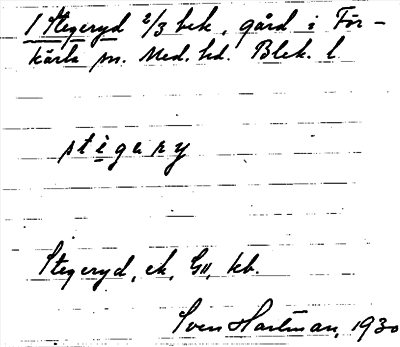 1 Stegeryd 2/3 bek, gård i För-
kärla sn. Med. hd. Blek. l.
stigery
Stegeryd, ek, G11, kb.
Sven Hartman, 1930